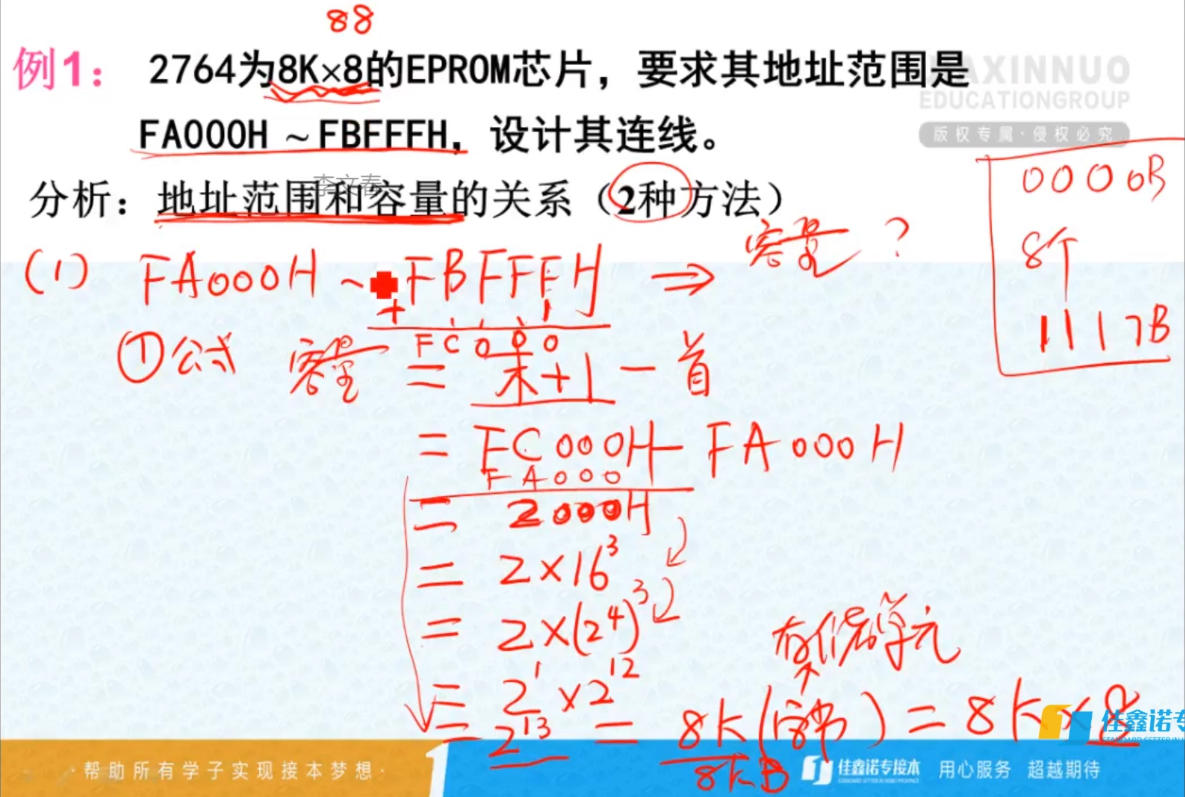 88
例1： 2764为8K×8的EPROM芯片，要求其地址范围是
FA000H ~ FBFFFH，设计其连线。
AXINNUO
EDUCATIONGROUP
版权专属·侵权必究
分析：地址范围和容量的关系（2种方法）
李文春
0000B
8个
1117B
(1) FA000H ~ FBFFFH ⇒ 容量？
+ 1
FC000
①公式 容量 = 末+1 - 首
= FC000H - FA000H
FA000
= 2000H
= 2×16³
= 2×(2⁴)³
= 2¹×2¹²
= 2¹³ = 8K(字节) = 8K×8
8KB
存储单元
佳鑫诺专
·帮助所有学子实现接本梦想·
佳鑫诺专接本
用心服务 超越期待